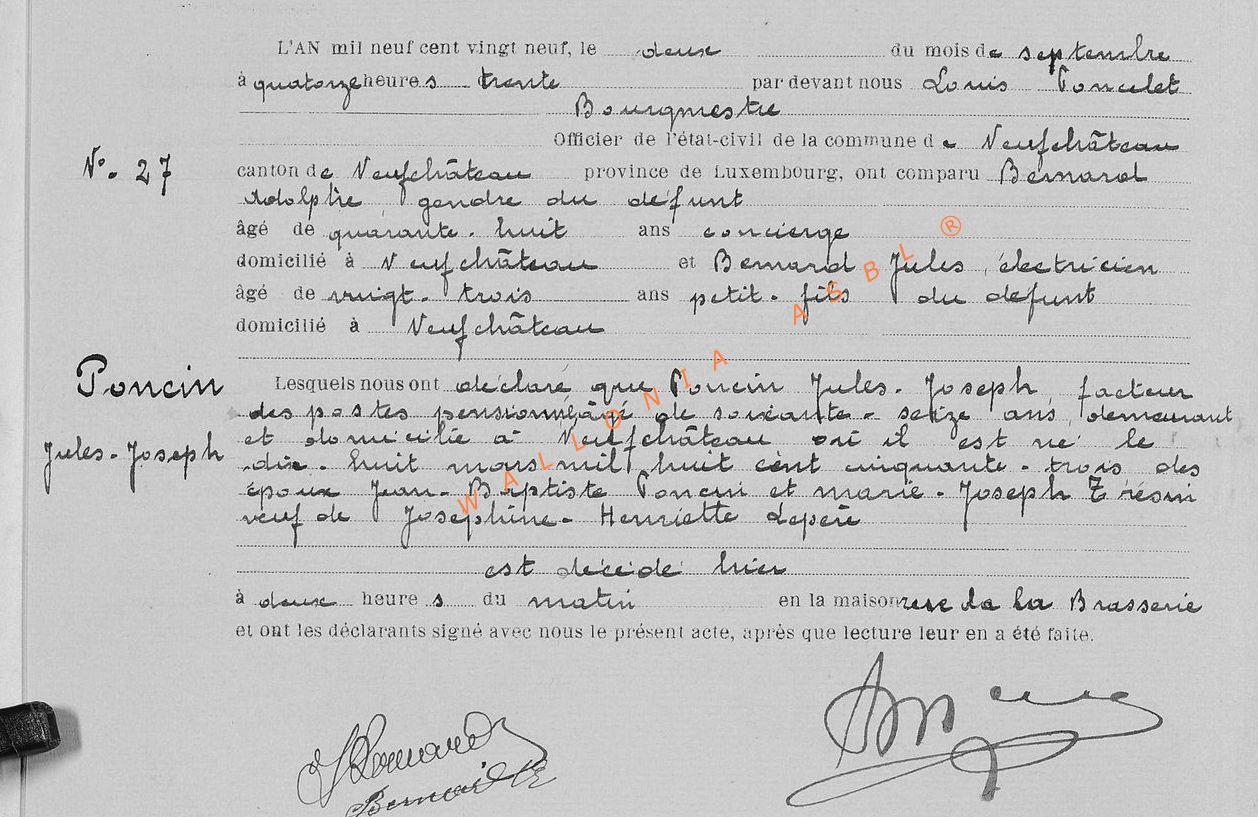 L'AN mil neuf cent vingt neuf, le deux du mois de septembre
à quatorze heures trente par devant nous Louis Poncelet
Bourgmestre
Officier de l'état-civil de la commune de Neufchâteau
N°. 27
canton de Neufchâteau province de Luxembourg, ont comparu Bernard
Adolphe, gendre du défunt
âgé de quarante-huit ans concierge
domicilié à Neufchâteau et Bernard Jules, électricien
âgé de vingt-trois ans petit-fils du défunt
domicilié à Neufchâteau
Poncin
Jules-Joseph
Lesquels nous ont déclaré que Poncin Jules-Joseph, facteur
des postes pensionné, âgé de soixante-seize ans, demeurant
et domicilié à Neufchâteau où il est né le
dix-huit mars mil huit cent cinquante-trois des
époux Jean-Baptiste Poncin et Marie-Joseph Thésin
veuf de Josephine-Henriette Lepère
est décédé hier
à deux heures du matin en la maison rue de la Brasserie
et ont les déclarants signé avec nous le présent acte, après que lecture leur en a été faite.
JBernard
Bernard
WALLONIA ASBL ®